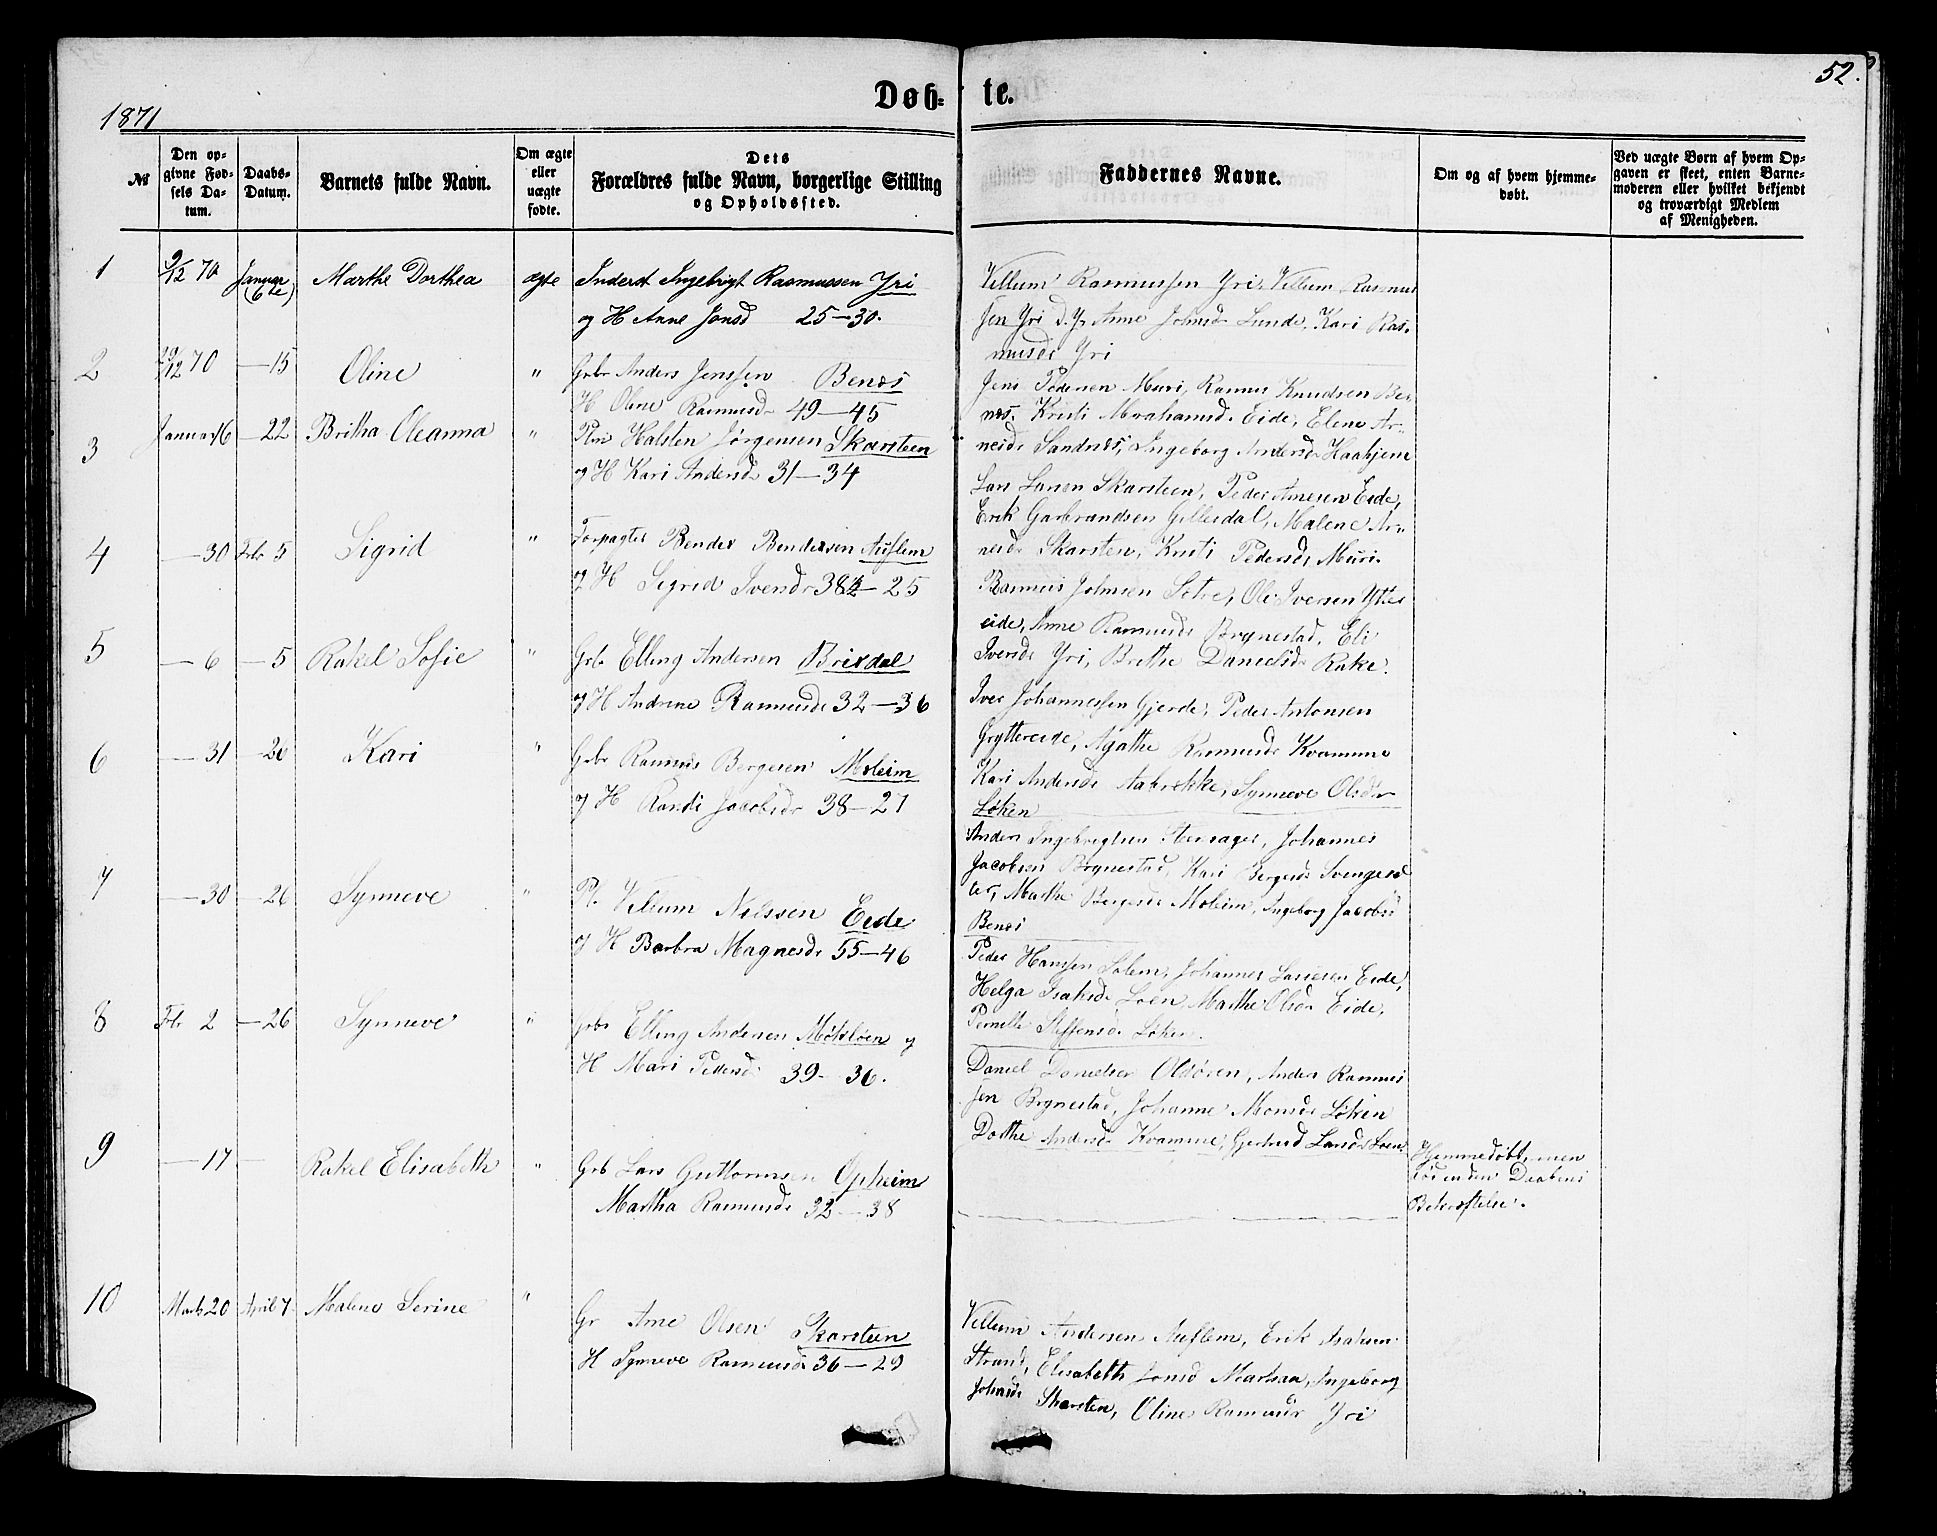 52.
Døb- te.
1871
№
Den opgivne Fødsels Datum.
Daabs-Datum.
Barnets fulde Navn.
Om ægte eller uægte fødte.
Dets Forældres fulde Navn, borgerlige Stilling og Opholdssted.
Faddernes Navne.
Om og af hvem hjemmedøbt.
Ved uægte Børn af hvem Opgaven er skeet, enten Barnemoderen eller hvilket bekjendt og troværdigt Medlem af Menigheden.
1 9/12 70 Januar 6te) Marthe Dorthea ægte Inderst Ingebrigt Rasmussen Yri
og H Anne Jonsd 25—30.
Villum Rasmussen Yri, Villum Rasmus
sen Yri d.y. Anne Johnsd Lunde, Kari Ras-
musdr Yri
2 29/12 70 —15 Oline " Gbr Anders Jenssen Benæs
H Oline Rasmusdr 49—45
Jens Pedersen Muri, Rasmus Knudsen Be-
næs. Kristi Abrahamsdr Eide, Elene Ar-
neidr Sandnæs, Ingeborg Andersdr Haahjem
3 Januar 16 —22 Britha Oleanna " Plm Halsten Jørgensen Skarsteen
og H Kari Andersd 31—34
Lars Larsen Skarsteen, Peder Arnesen Eide,
Erik Garbrandsen Gillesdal, Malene Ar-
nesdr Skarsten, Kristi Pedersdr Muri.
4 —30 Febr 5 Sigrid " Forpagter Bendix Bendixsen Auflem
og H Sigrid Iversdr 38—25
Rasmus Johnsen Sætre, Ole Iversen Ytre
eide, Anne Rasmusdr Brynestad, Eli
Iversdr Yri, Brithe Danielsdr Rake.
5 —6 —5 Rakel Sofie " Grb. Elling Andersen Brixdal
og H Andrine Rasmusdr 32—36
Iver Johannessen Gjerde, Peder Antonsen
Gryttereide, Agathe Rasmusdr Kvamme
Kari Andersdr Aabrekke, Synneve Olsdr
Løken
6 —31 26 Kari " Gbr Rasmus Bergesen Moleim
og H Randi Jacobsdr 38—27
Anders Ingebrigtsen Stensager, Johannes
Jacobsen Brynestad, Kari Bergesdr Svengesd
ter, Marthe Bergesdr Moleim, Ingeborg Jacobsd
Benæs
7 —30 26 Synneve " Pl. Villum Nilssen Eide
og H Barbra Magnesdr 55—46
Peder Hanssen Solem, Johannes Larsesen Eide,
Helga Isaksdr Loen, Marthe Olsdr Eide,
Pernille Steffensdr Løken.
8 Febr 2 —26 Synneve " Grbr Elling Andersen Mökløen og
H Mari Pedersd 39—36.
Daniel Danielsen Oldören, Anders Rasmus
sen Brynestad, Johanne Monsdr Løken
Dorthe Andersdr Kvamme, Gjertrud Larsdr Loen
9 —17 — Rakel Elisabeth " Grb Lars Guttormsen Opheim
Martha Rasmusdr 32—38
Hjemmedøbt, men
død inden Daabens
Bekræftelse.
10 Marts 20 April 7 Malene Serine " Gr Arne Olsen Skarsteen
H Synneve Rasmusdr 36—29
Villum Andersen Auflem, Erik Isaksen
Strand, Elisabeth Jonsd Markan, Ingeborg
Johnsdr Skarsten, Oline Rasmusdr Yri